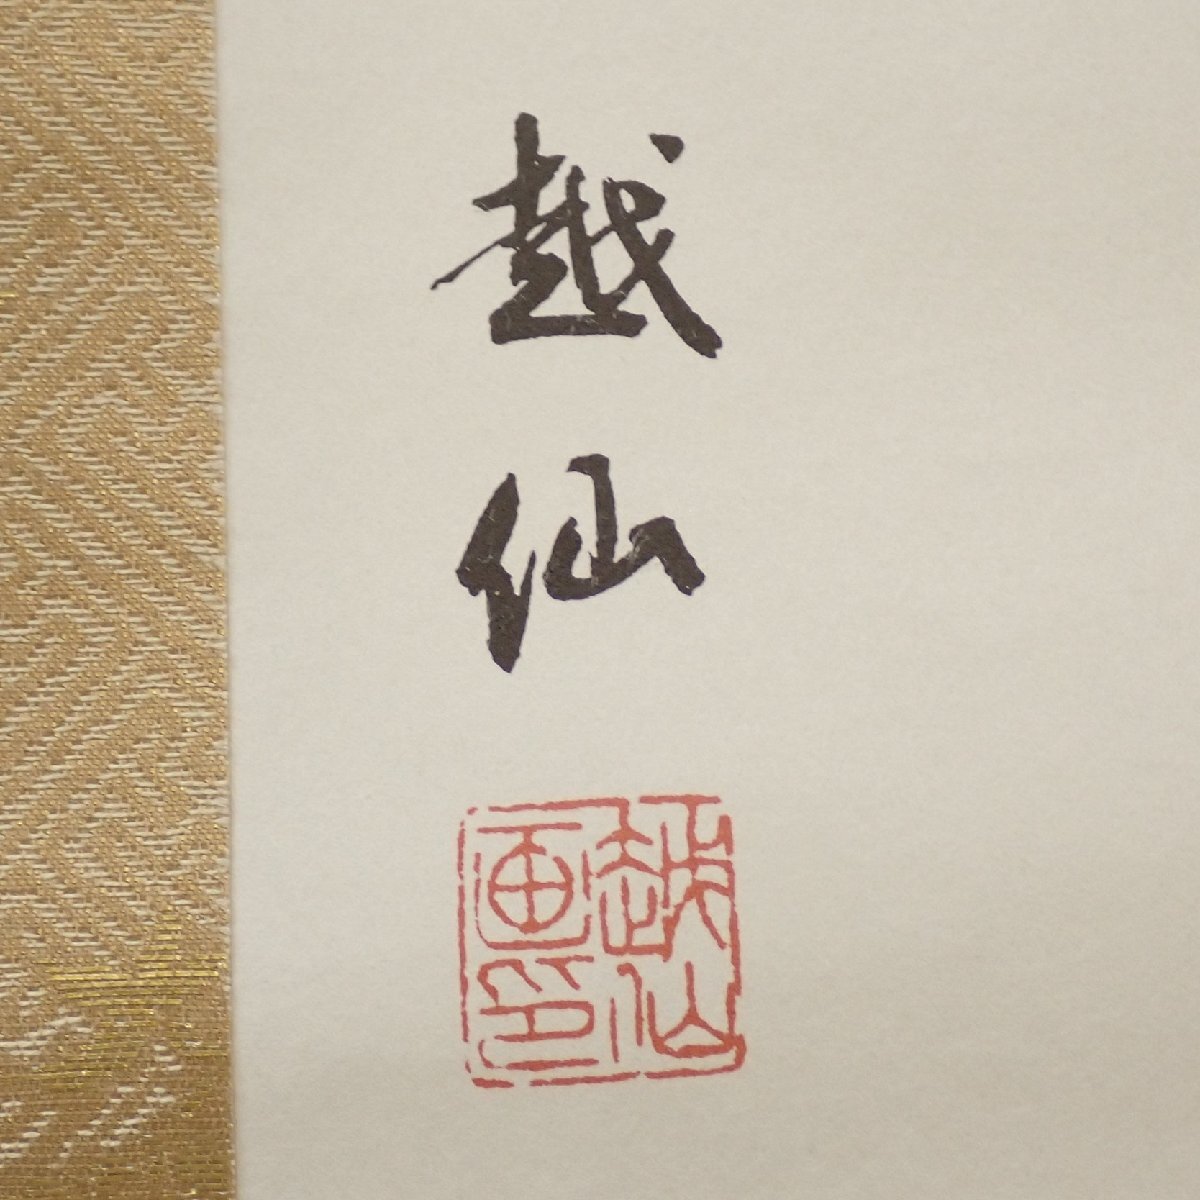 越仙
越仙
画印